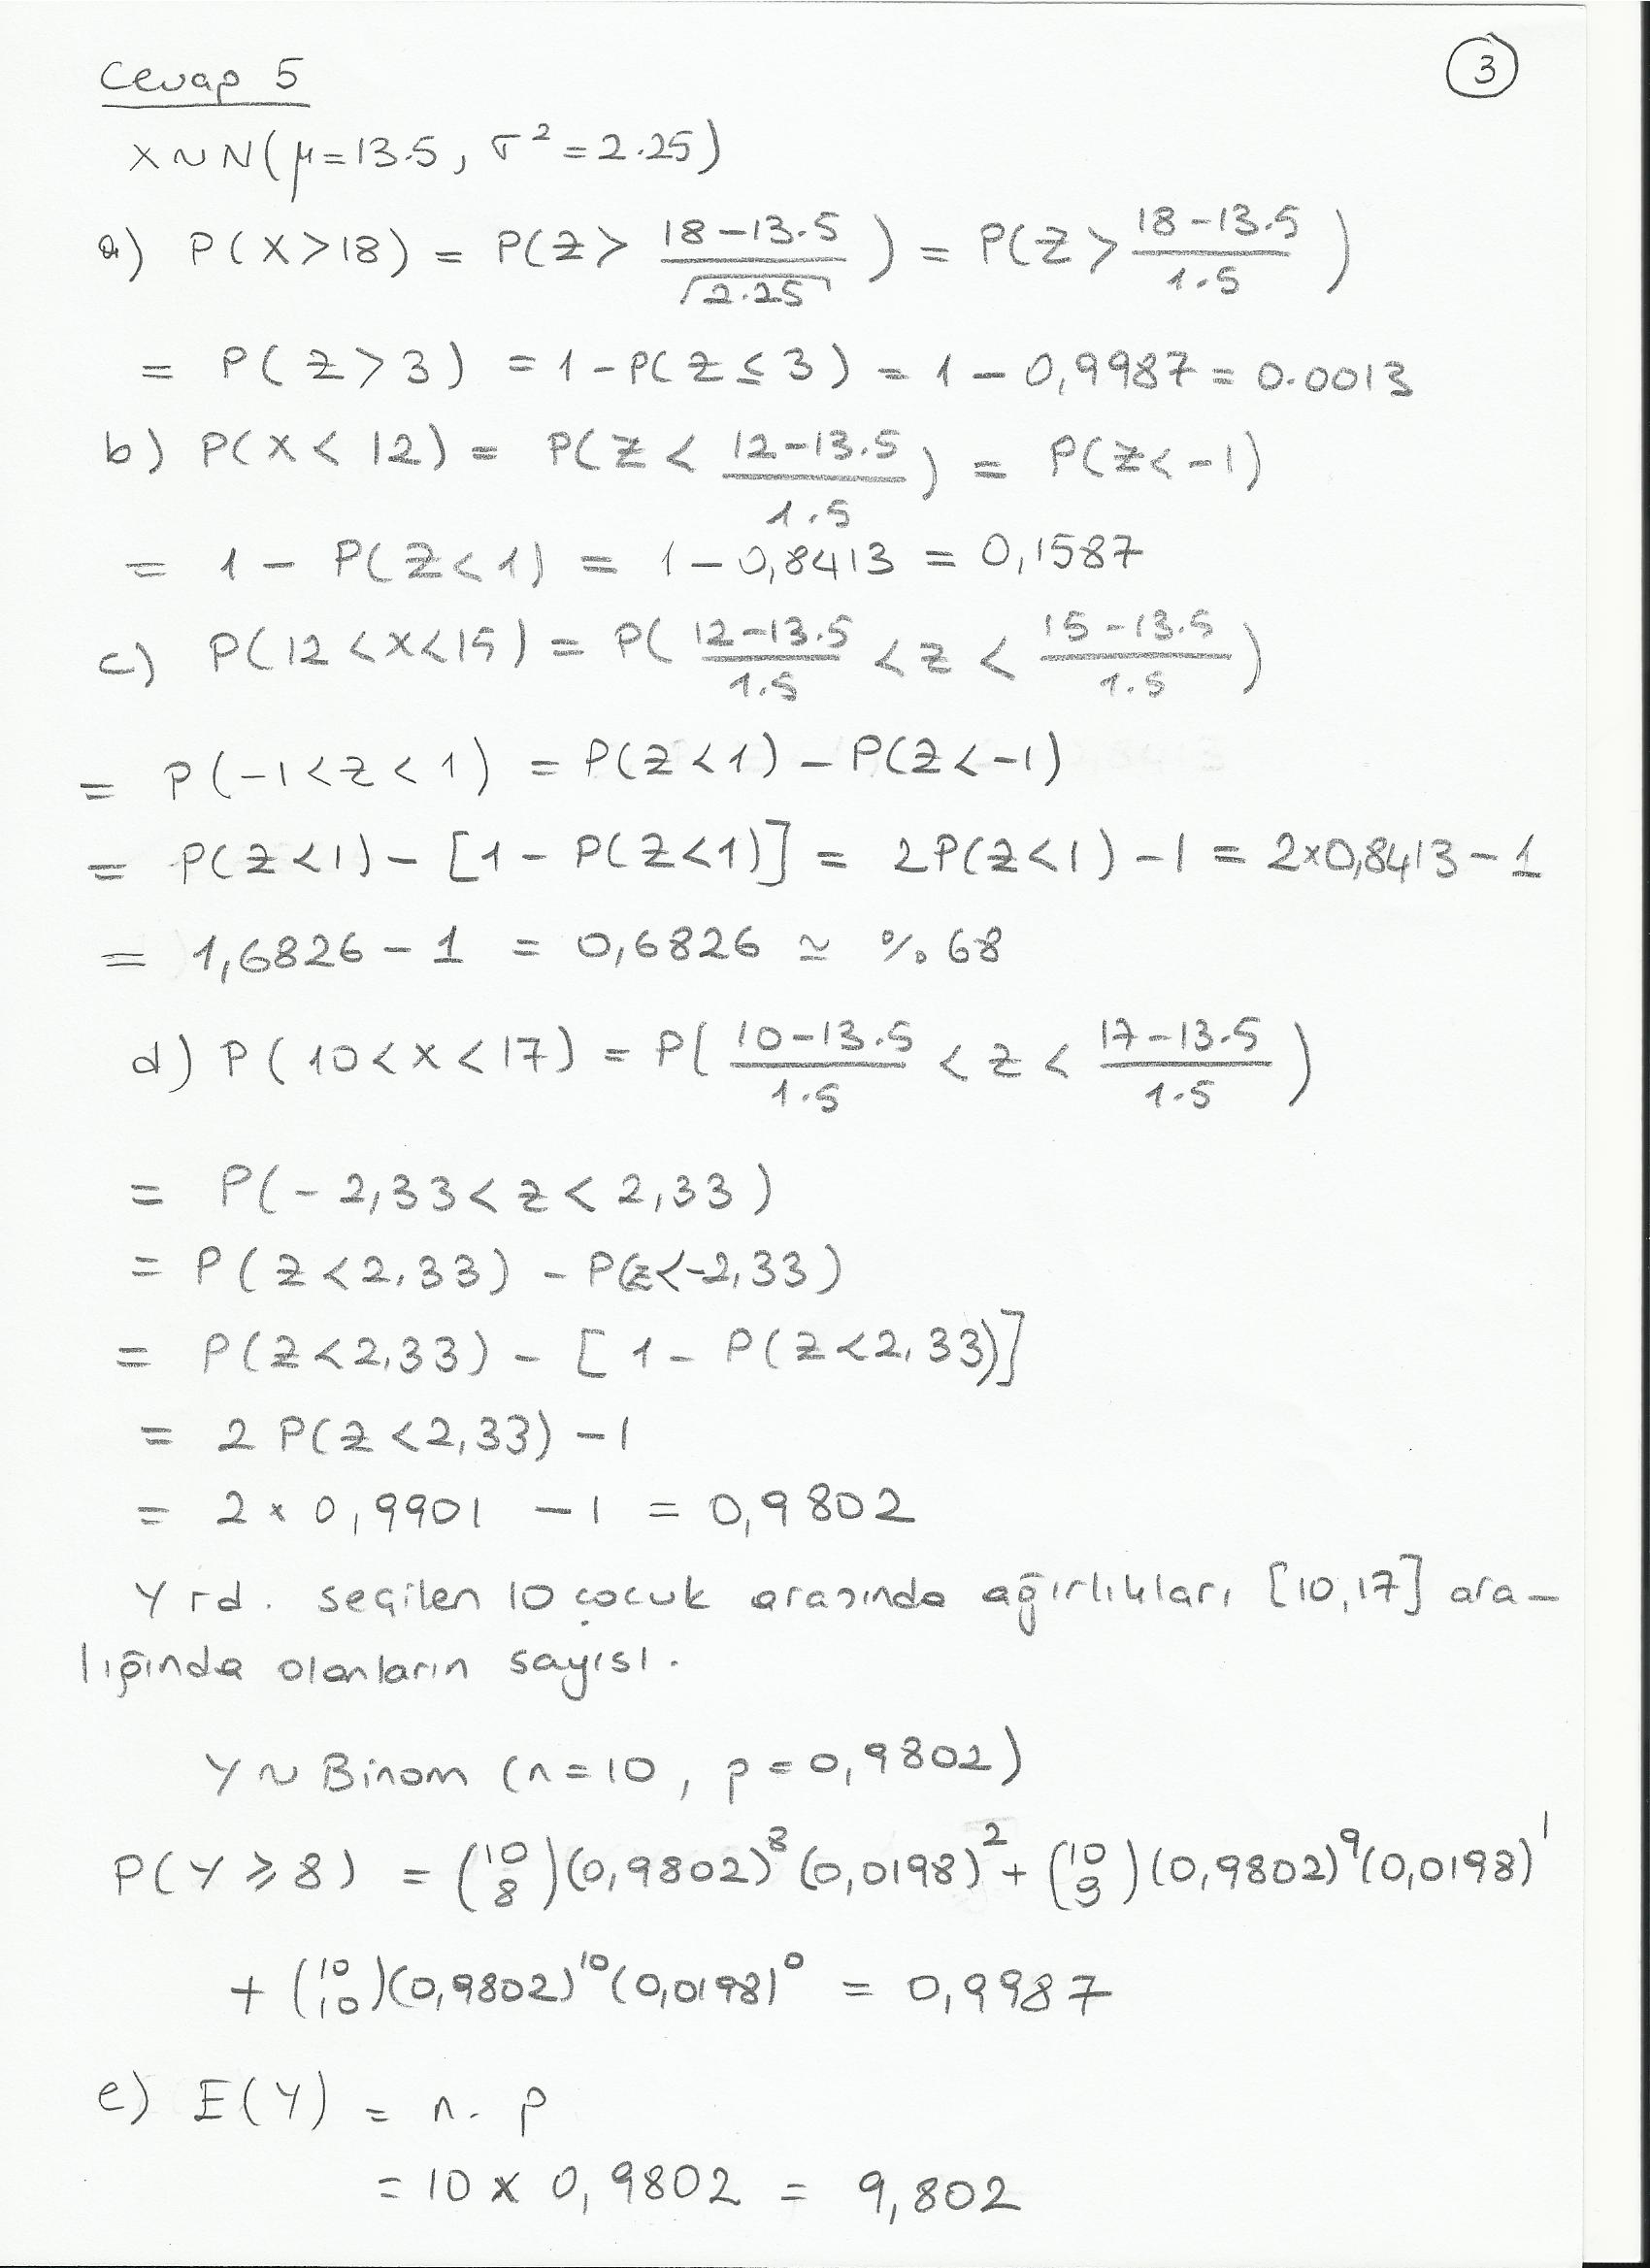 Cevap 5
3
X~N(μ=13.5, σ²=2.25)
a) P(X>18) = P(Z> (18-13.5)/√2.25) = P(Z> (18-13.5)/1.5)
= P(Z>3) = 1-P(Z≤3) = 1-0,9987 = 0.0013
b) P(X<12) = P(Z< (12-13.5)/1.5) = P(Z<-1)
= 1 - P(Z<1) = 1-0,8413 = 0,1587
c) P(12<X<15) = P( (12-13.5)/1.5 <Z< (15-13.5)/1.5 )
= P(-1<Z<1) = P(Z<1) - P(Z<-1)
= P(Z<1) - [1 - P(Z<1)] = 2P(Z<1) -1 = 2x0,8413-1
= 1,6826 - 1 = 0,6826 ≃ %68
d) P(10<X<17) = P( (10-13.5)/1.5 <Z< (17-13.5)/1.5 )
= P(-2,33<Z<2,33)
= P(Z<2,33) - P(Z<-2,33)
= P(Z<2,33) - [1 - P(Z<2,33)]
= 2 P(Z<2,33) -1
= 2 x 0,9901 -1 = 0,9802
Y rd. seçilen 10 çocuk arasında ağırlıkları [10,17] ara-
lığında olanların sayısı.
Y~Binom (n=10, p=0,9802)
P(Y≥8) = (10 8)(0,9802)⁸(0,0198)² + (10 9)(0,9802)⁹(0,0198)¹
+ (10 10)(0,9802)¹⁰(0,0198)⁰ = 0,9987
e) E(Y) = n. p
= 10 x 0,9802 = 9,802